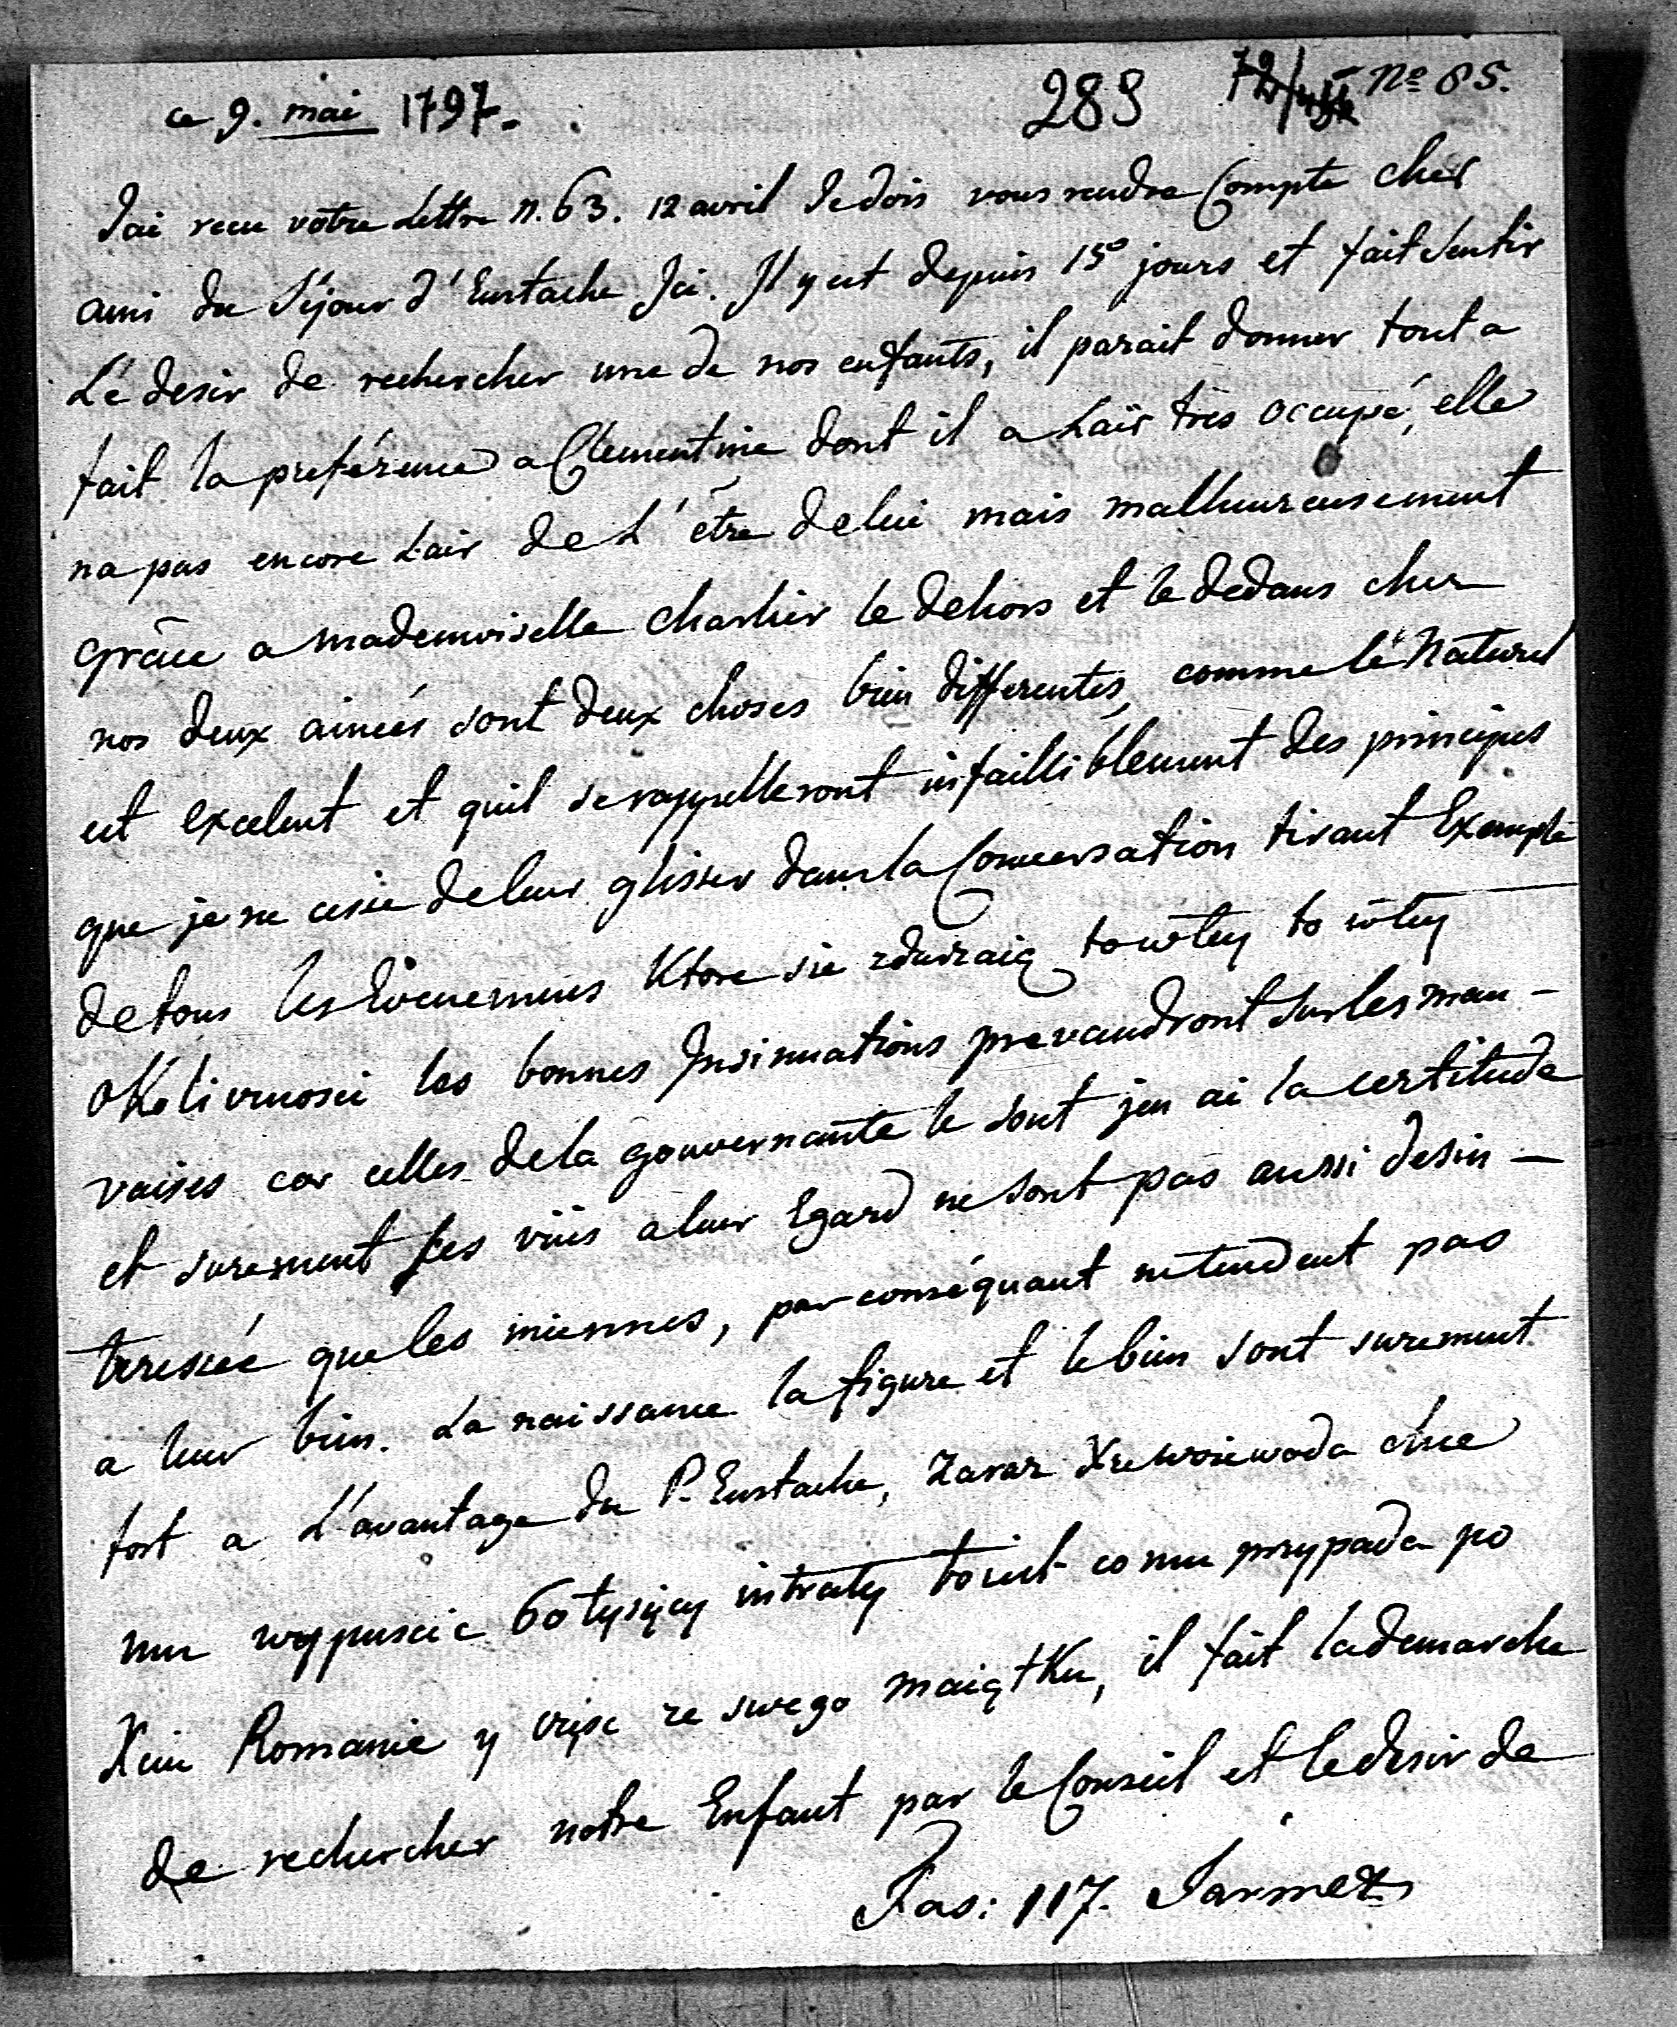 ce 9. mai 1797. 289 nº 85.
Jai recu votre Lettre n. 63. 12 avril Je dois vous rendre Compte cher
ami du Séjour d'Eustache Jci. Jl y est depuis 15 jours et fait sentir
Lé desir de rechercher une de nos enfants, il parait donner tout a
fait la preférence a Clementine dont il a Lair très occupé, elle
na pas encore Lair de L'être de lui mais malheureusement
grâce a mademoiselle Charlier le dehors et le dedans chez
nos deux ainées sont deux choses bien differentes, comme lé Naturel
est excelent et quil se rappelleront infailliblement des principes
que je ne cesse de leur glisser dans la Conversation tirant Exemple
de tous les Evenemens Ktore sie zdarzaią to w tey to w tey
okolicznosci les bonnes Insinuations prevaudront sur les mau-
vaises car celles de la gouvernante le sont jen ai la certitude
et surement ses vües a leur Egard ne sont pas aussi desin-
teressée que les miennes, par conséquant ne tendent pas
a leur bien. La naissance la figure et le bien sont surement
fort a L'avantage du P. Eustache, Zaraz Xże woiewoda chce
mu wypuscic 60 tysięcy intraty to iest co mu przypada po
Xciu Romanie y część ze swego maiątku, il fait la demarche
de rechercher notre Enfant par le Conseil et le desir de
Fas: 117. Jarmez